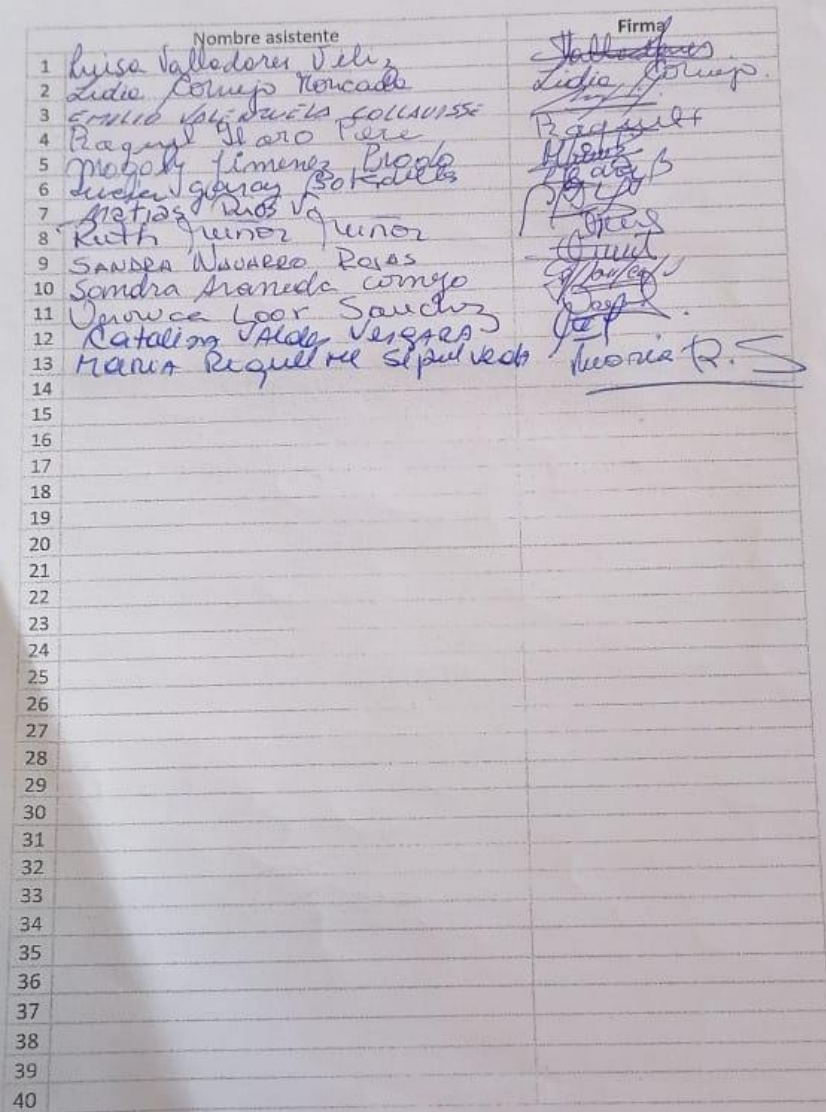 Nombre asistente Firma
1 Luisa Valladares Veliz Valladares
2 Lidia Cornejo Moncada Lidia Cornejo.
3 EMILIO VALENZUELA COLLAVISSE
4 Raquel Haro Raquel
5 Magaly Jimenez
6 Garay
7 Matias Rios
8 Ruth
9 SANDRA NAVARRO ROJAS
10 Sandra Araneda Cornejo
11 Veronica Loor Sanchez
12 Catalina VAldes VergARA
13 MARIA Riquelme Sepulveda Maria R. S
14
15
16
17
18
19
20
21
22
23
24
25
26
27
28
29
30
31
32
33
34
35
36
37
38
39
40